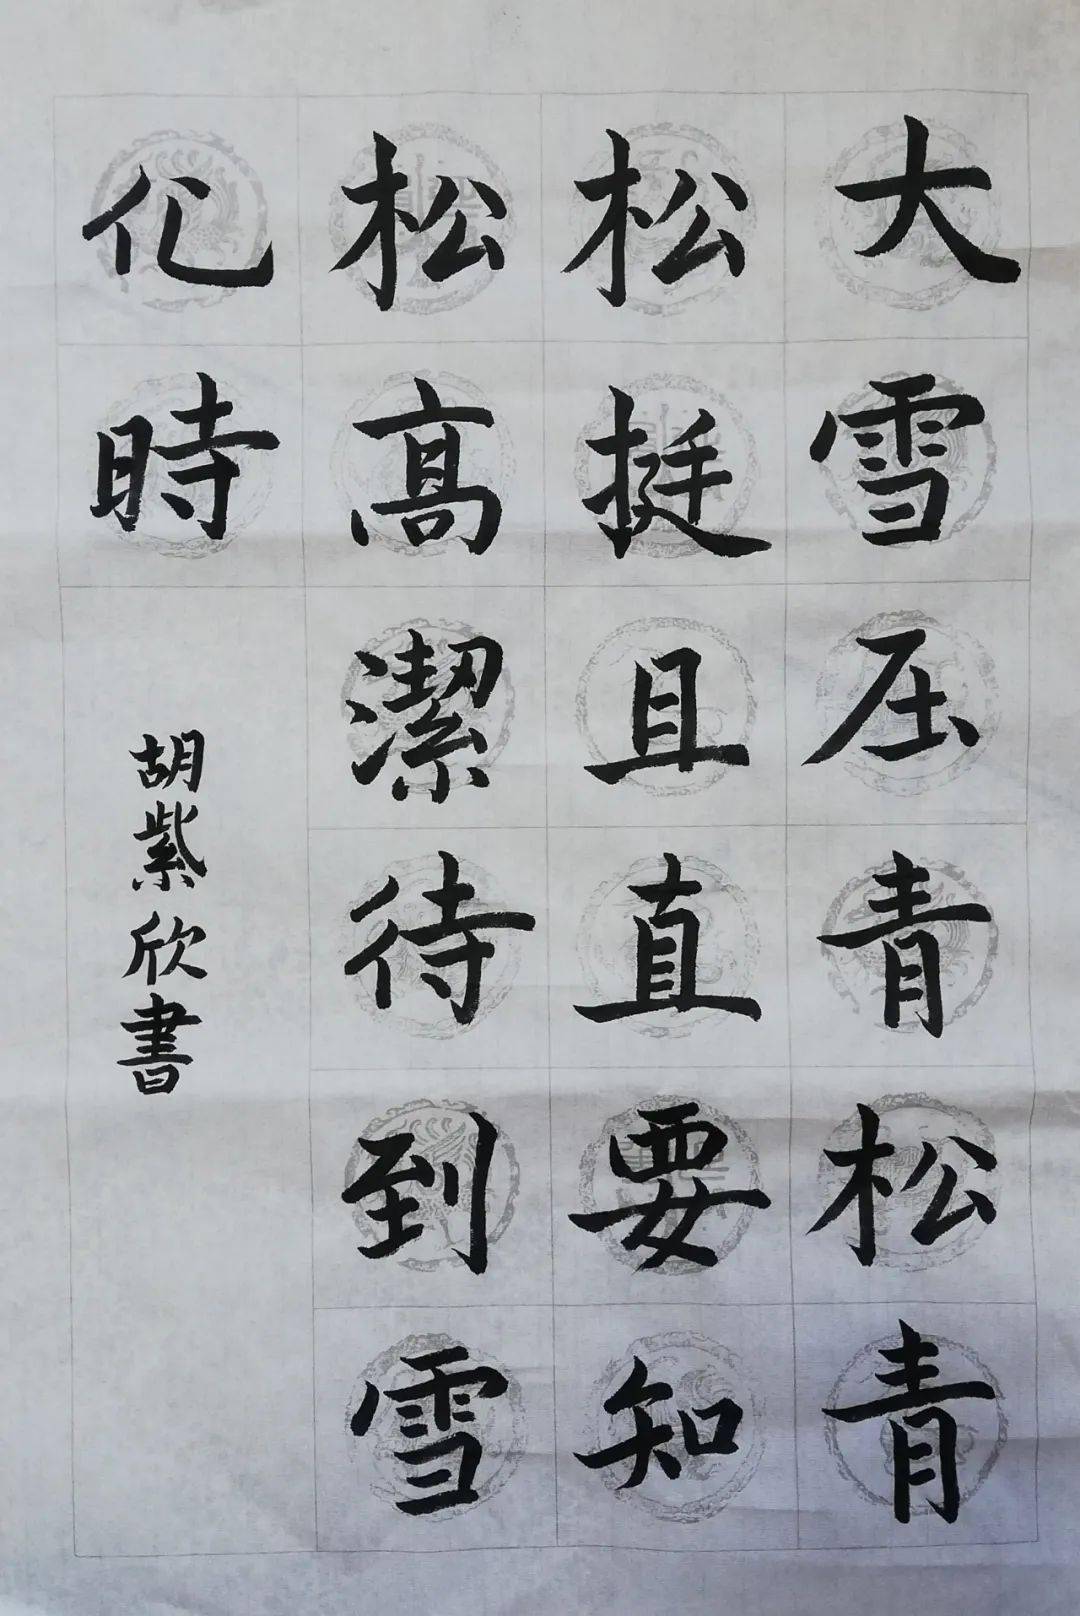 大雪压青松青
松挺且直要知
松高潔待到雪
化時
胡紫欣書